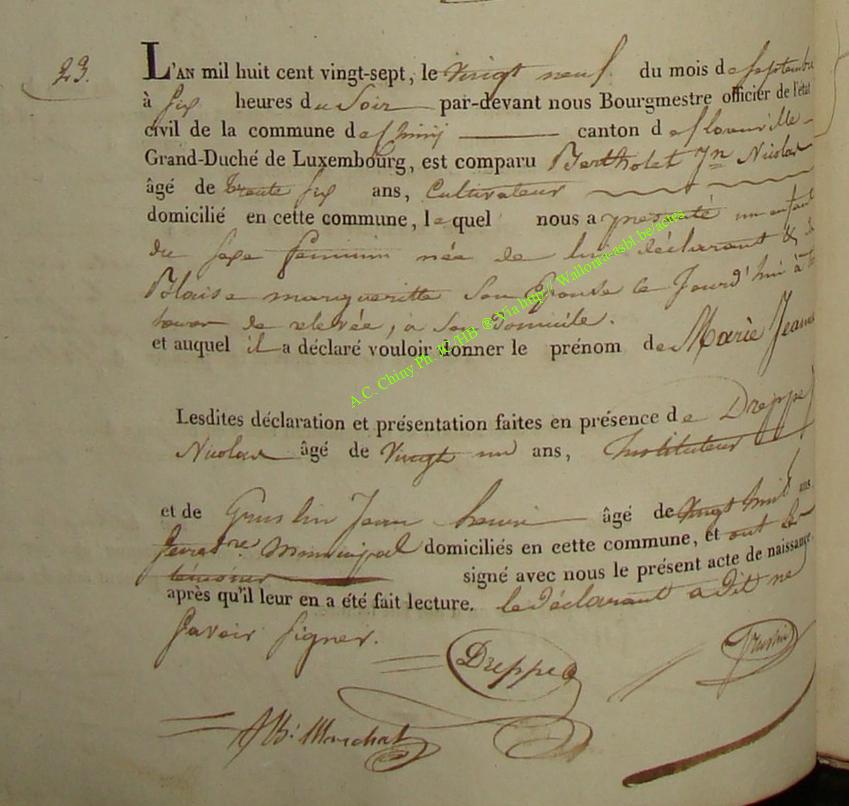 23.
L'AN mil huit cent vingt-sept, le vingt neuf du mois de septembre
à six heures du Soir par-devant nous Bourgmestre officier de l'état
civil de la commune de Chiny canton de florenville
Grand-Duché de Luxembourg, est comparu Bertholet Jn Nicolas
âgé de trente six ans, Cultivateur
domicilié en cette commune, lequel nous a présenté un enfant
du sexe feminin née de lui déclarant & de
Blaise margueritte son Epouse le Jourd'hui à
de relevée, a son domicile.
et auquel il a déclaré vouloir donner le prénom de Marie Jeanne
Lesdites déclaration et présentation faites en présence de Dreppe
Nicolas âgé de Vingt un ans, Instituteur
et de Jean henri âgé de vingt huit ans
Secretre Municipal domiciliés en cette commune, et ont les
témoins signé avec nous le présent acte de naissance,
après qu'il leur en a été fait lecture. le déclarant a dit ne
savoir signer.
Dreppe
A.C. Chiny Ph. W. HB @ Via http:// Wallonia-asbl.be/actes